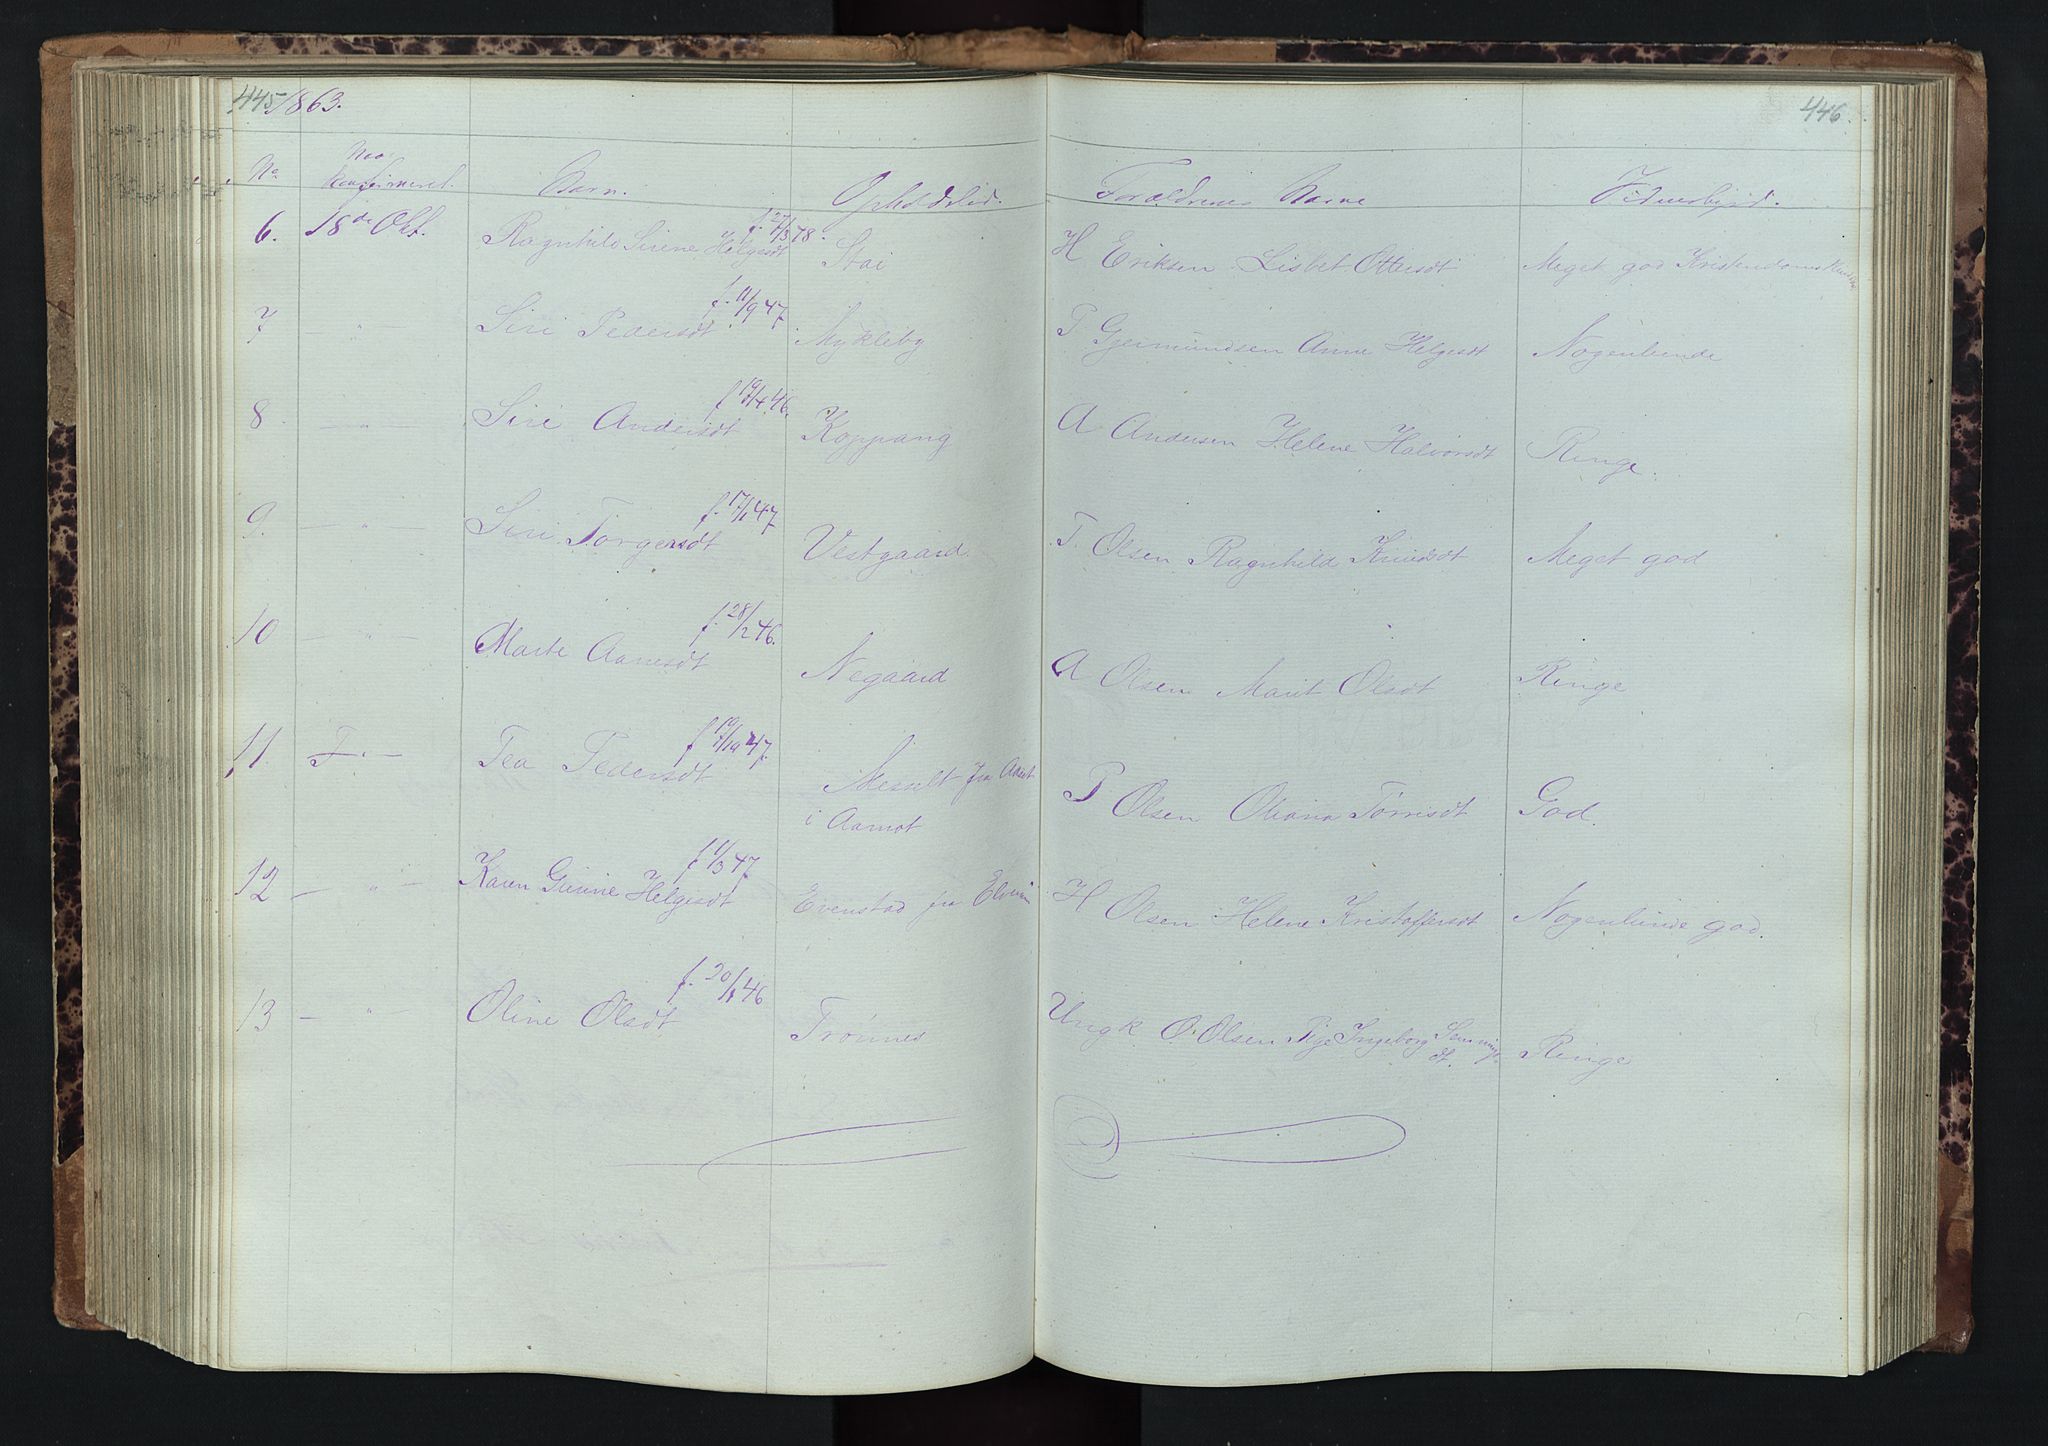 445 1863. 446.
No Naar konfirmeret. Barn. Opholdsted. Forældrenes Navne Vidnesbyrd.
6. 18de Okt. Ragnhild Sirene Helgesdt f. 27/3 48. Stai H Eriksen Lisbet Ottersdt Meget god Kristendomskundsk.
7 — " — Siri Pedersdt f. 11/9 47. Mykleby P Gjermundsen Anne Helgesdt Nogenlunde
8 — " — Siri Andersdt f 19/4 46. Koppang A Andersen Helene Halvorsdt Ringe.
9. — " — Siri Torgersdt f. 17/1 47 Vestgaard T. Olsen Ragnhild Knudsdt Meget god
10 — " — Marte Aamesdt f. 28/12 46. Negaard A Olsen Marit Olsdt Ringe
11. Tea Pedersdt f 19/10 47. Messelt fra
i Aamot P Olsen Oliana Tørrisdt God.
12 — " — Karen Gurine Helgesdt f 11/3 47 Evenstad fra Elverum H Olsen Helene Kristoffersdt Nogenlunde god.
13 — " — Oline Olsdt f. 20/1 46 Trønnes Ungk O. Olsen Pige Ingeborg Semmingsdt. Ringe